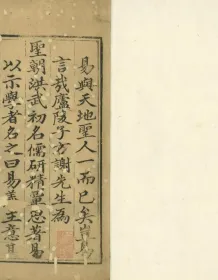 易與天地聖人一而已矣豈易
言哉廬陵子方謝先生爲
聖朝洪武初名儒研精覃思著易
以示學者名之曰易